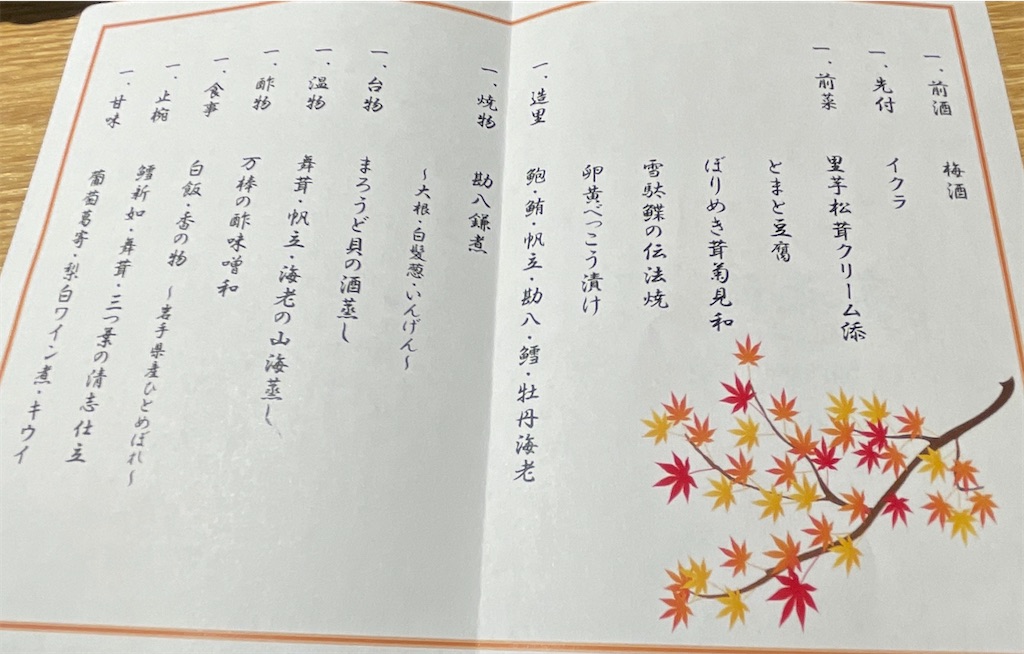 一、前酒　梅酒
一、先付　イクラ
一、前菜　里芋松茸クリーム添
とまと豆腐
ぼりめき茸菊見和
雪駄鰈の伝法焼
卵黄べっこう漬け
一、造里　鮑・鮪・帆立・勘八・鱈・牡丹海老
一、焼物　勘八鎌煮
～大根・白髪葱・いんげん～
一、台物　まろうど貝の酒蒸し
一、温物　舞茸・帆立・海老の山海蒸し
一、酢物　万棒の酢味噌和
一、食事　白飯・香の物　～岩手県産ひとめぼれ～
一、止椀　鱈新如・舞茸・三つ葉の清志仕立
一、甘味　葡萄葛寄・梨白ワイン煮・キウイ